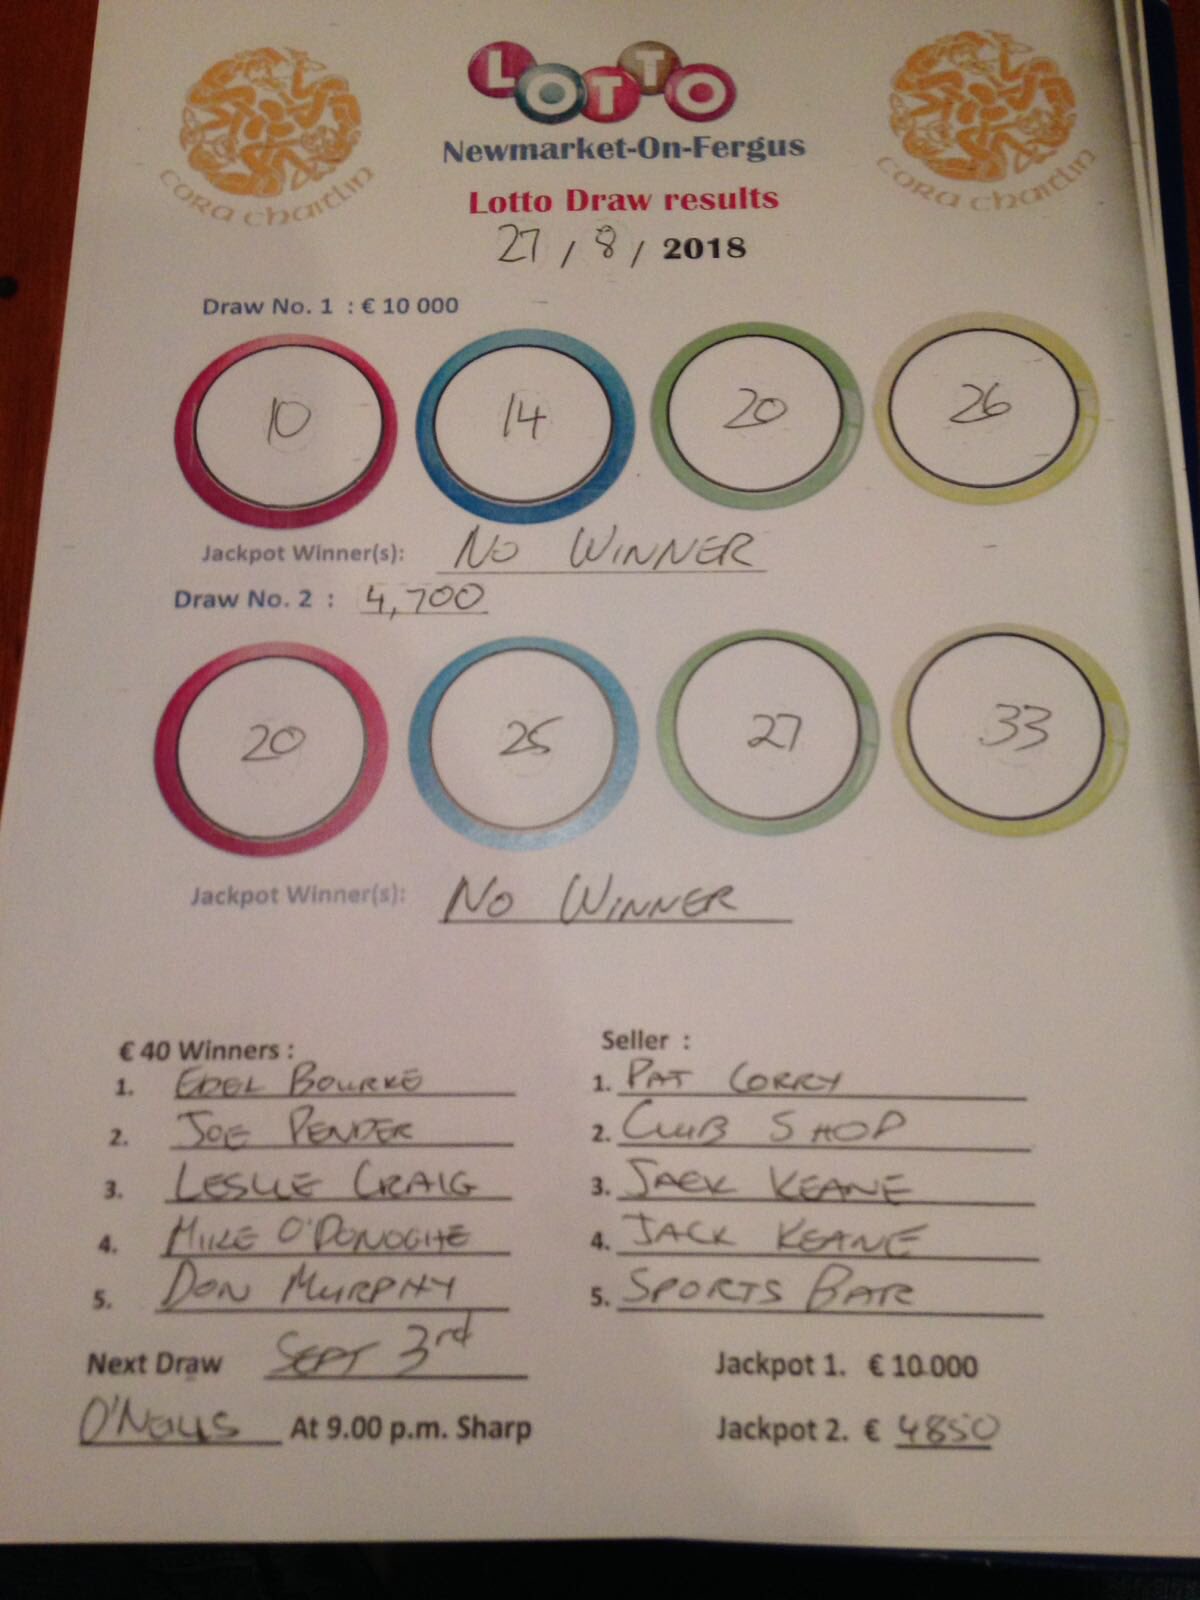 LOTTO
CORA CHAITLIN
CORA CHAITLIN
Newmarket-On-Fergus
Lotto Draw results
27 / 8 / 2018
Draw No. 1 : € 10 000
10 14 20 26
Jackpot Winner(s): NO WINNER
Draw No. 2 : 4,700
20 25 27 33
Jackpot Winner(s): NO WINNER
€ 40 Winners : Seller :
1. EDEL BOURKE 1. PAT CORRY
2. JOE PENDER 2. CLUB SHOP
3. LESLIE CRAIG 3. JACK KEANE
4. MIKE O'DONOGHE 4. JACK KEANE
5. DON MURPHY 5. SPORTS BAR
Next Draw SEPT 3rd Jackpot 1. € 10.000
At 9.00 p.m. Sharp Jackpot 2. € 4850